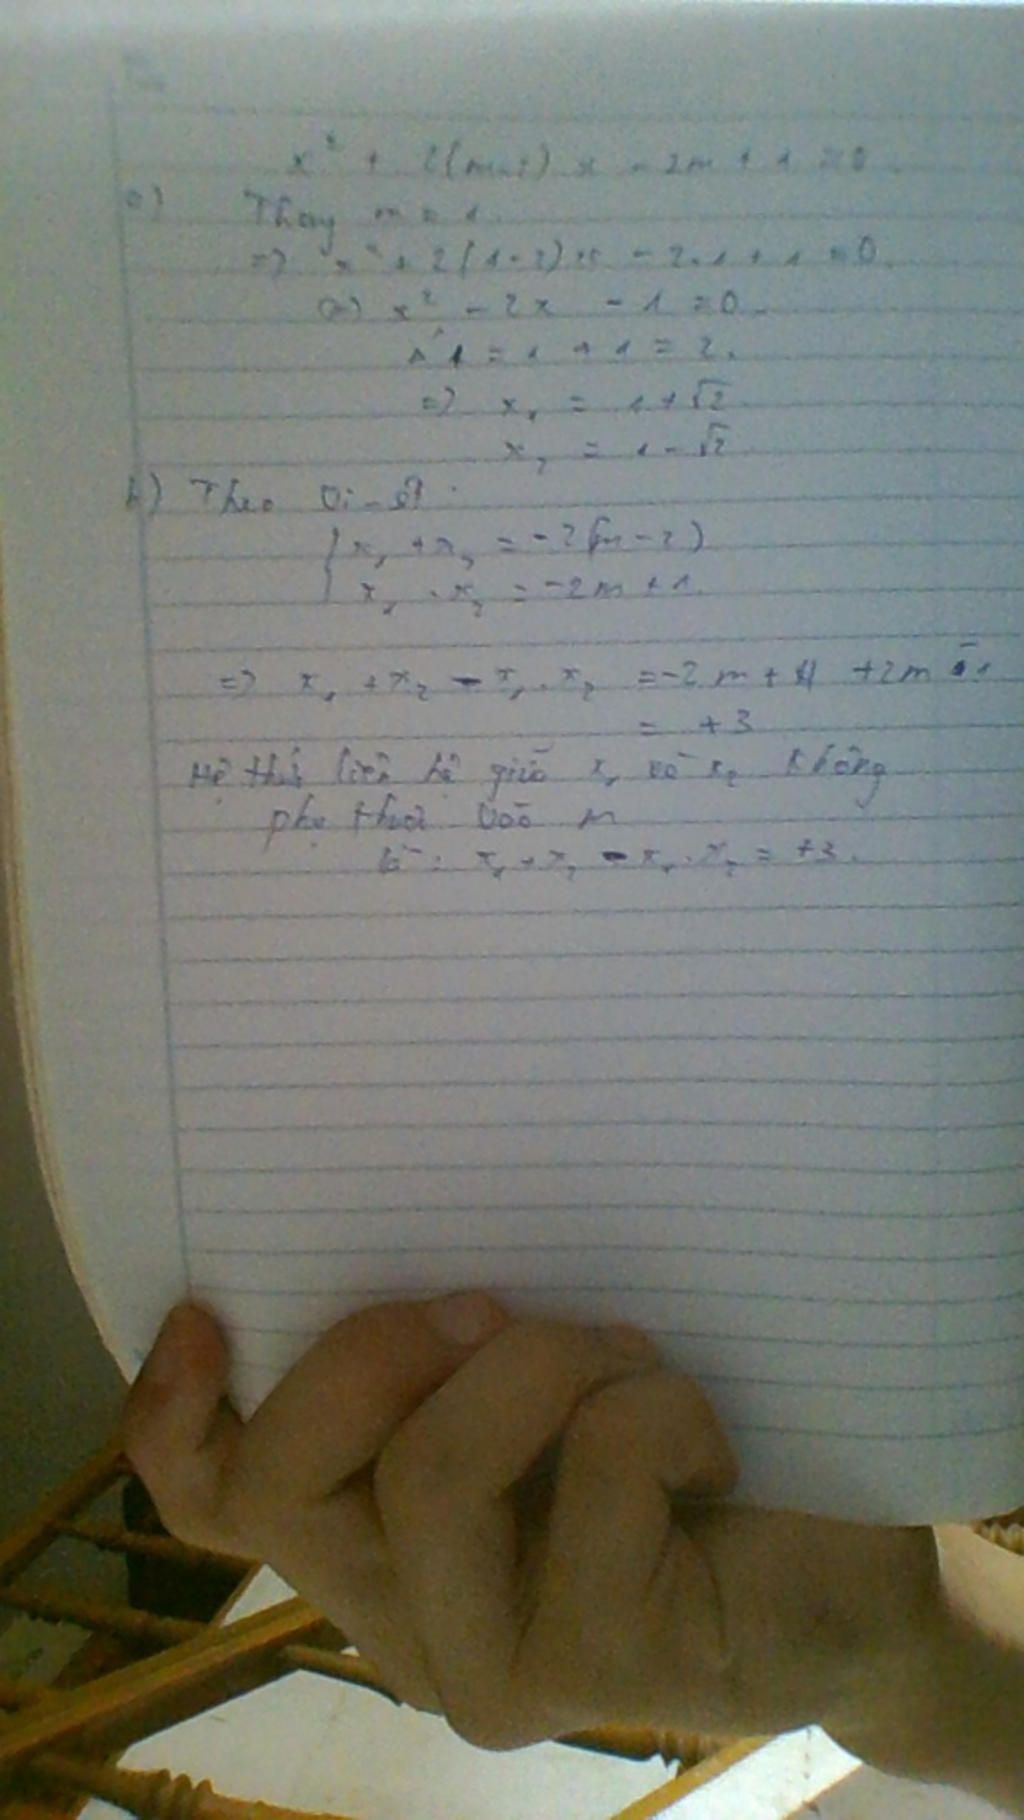 x² + 2(m-2)x - 2m + 1 = 0.
a) Thay m = 1.
=> x² + 2(1-2)x - 2.1 + 1 = 0.
<=> x² - 2x - 1 = 0.
Δ' = 1 + 1 = 2.
=> x₁ = 1+√2
x₂ = 1-√2
b) Theo Vi-ét
{ x₁ + x₂ = -2(m-2)
x₁ . x₂ = -2m + 1.
=> x₁ + x₂ - x₁ . x₂ = -2m + 4 + 2m - 1
= +3
Hệ thức liên hệ giữa x₁ và x₂ không
phụ thuộc vào m
là : x₁ + x₂ - x₁ . x₂ = +3.